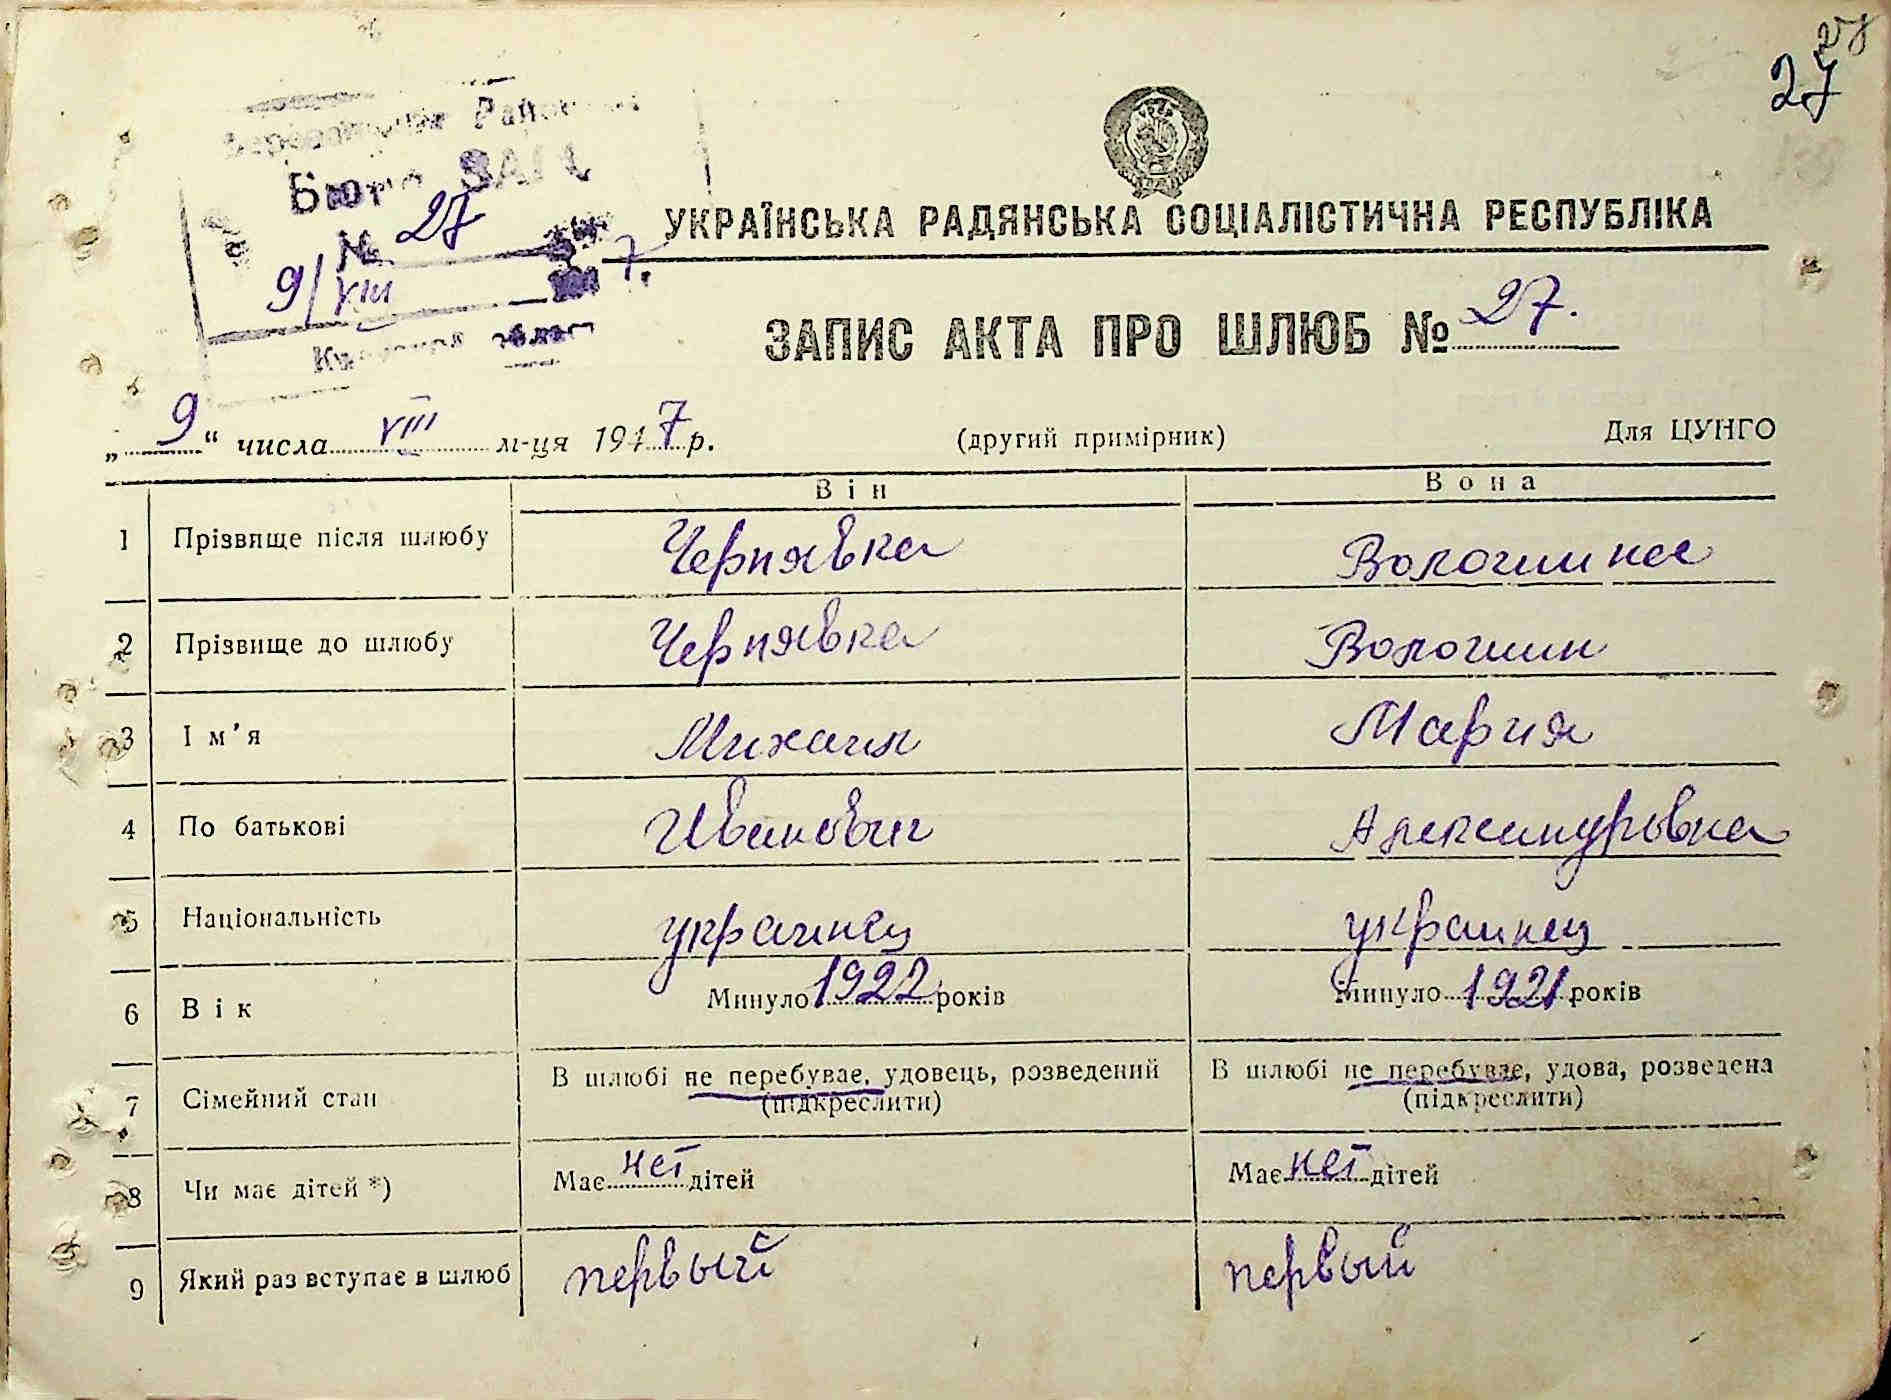 27
27
Бюро ЗАГС
№ 27
9/VIII 7.
УКРАЇНСЬКА РАДЯНСЬКА СОЦІАЛІСТИЧНА РЕСПУБЛІКА
ЗАПИС АКТА ПРО ШЛЮБ № 27.
„9“ числа VIII м-ця 1947 р. (другий примірник) Для ЦУНГО
Він Вона
1 Прізвище після шлюбу Чернявка Волошина
2 Прізвище до шлюбу Чернявка Волошин
3 Ім’я Михаил Мария
4 По батькові Иванович Александровна
5 Національність украинец украинец
6 Вік Минуло 1922 років Минуло 1921 років
7 Сімейний стан В шлюбі не перебуває, удовець, розведений (підкреслити) В шлюбі не перебуває, удова, розведена (підкреслити)
8 Чи має дітей *) Має нет дітей Має нет дітей
9 Який раз вступає в шлюб первый первый